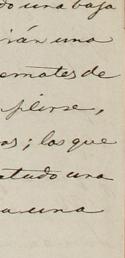 do una baja
irán una
emates de
plirse,
os; las que
etudo una
a una